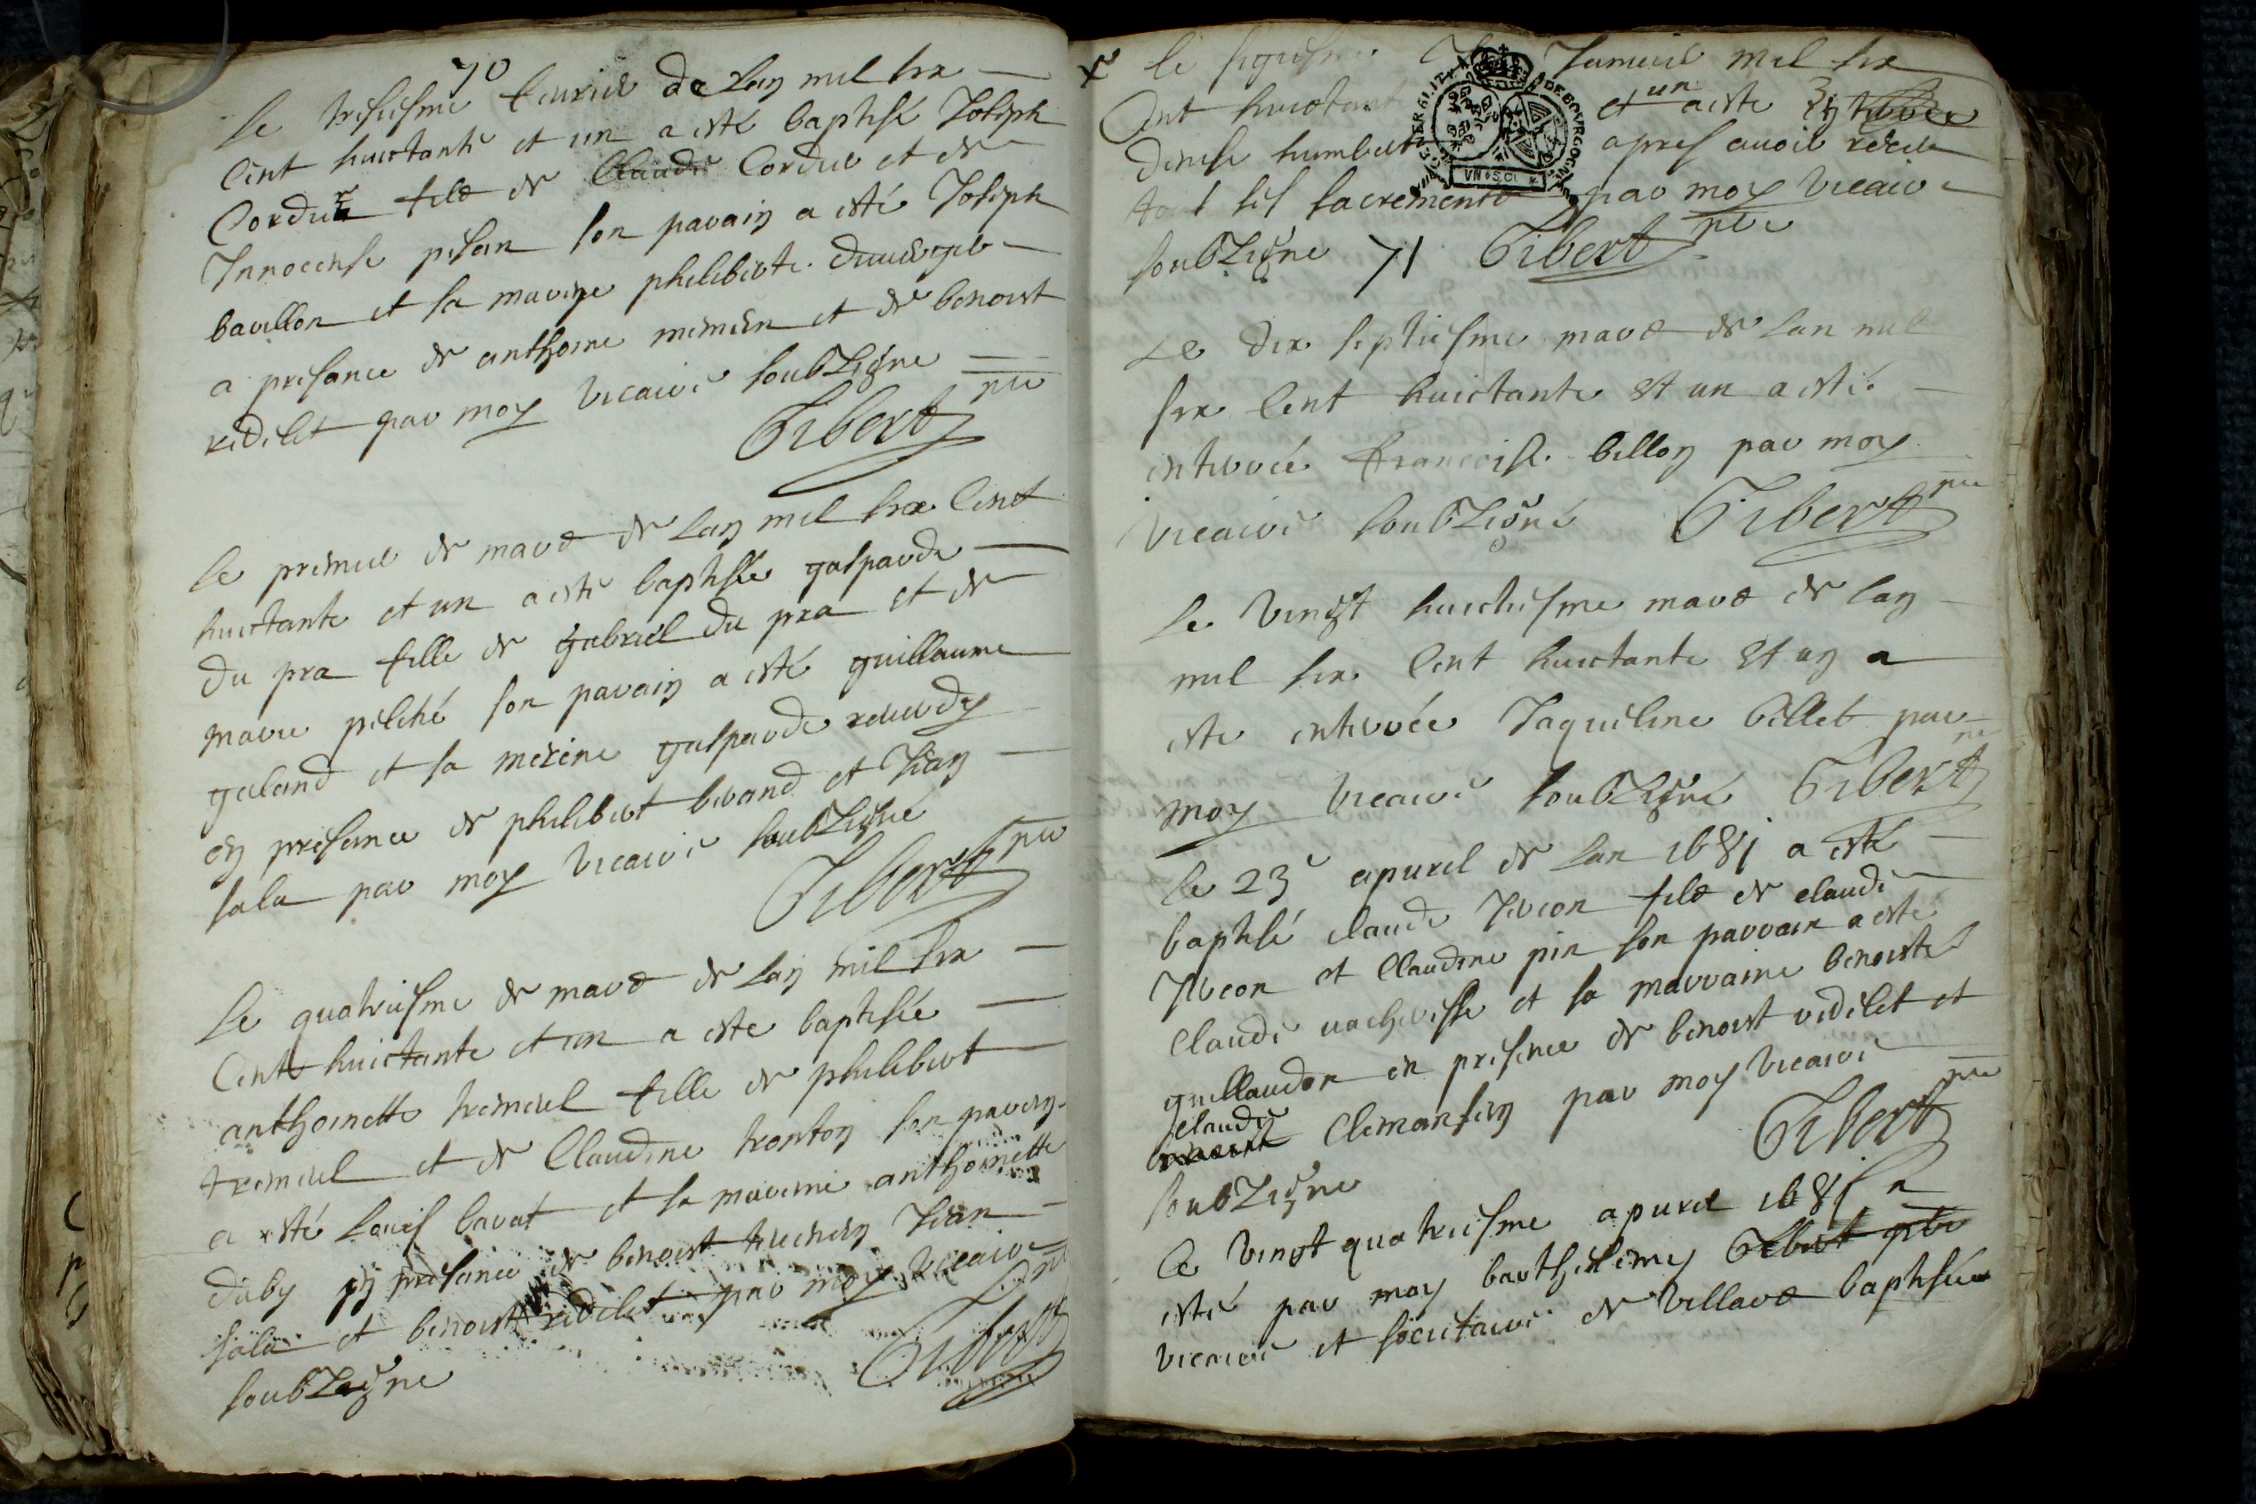 70
Le tresiesme feurier de lan mil six
Cent huictante et un a esté baptisé Joseph
Cordier filz de Claude Cordier et de
Innocense son parain a esté Joseph
bavillon et sa marine philiberte
a presance de anthoine et de benoist
ridelet par moy vicaire soubzigné
Gibert pbr
Le premier de mars de lan mil six Cent
huictante et un a esté baptisée gasparde
du pra fille de gabriel du pra et de
marie son parain a esté guillaume
galand et sa merine gasparde
en presance de philibert et Jean
sala par moy vicaire soubzigné
Gibert pbr
Le quatriesme de mars de lan mil six
Cent huictante et un a este baptisée
anthoinette tremeul fille de philibert
tremeul et de Claudine son parain
a esté Louis et sa marine anthoinette
en presance de benoist Jean
sala et benoist ridelet par moy vicaire
soubzigne
Gibert
Le Januier mil six
Cent huictante et un a este
denise humbert apres auoir receu
tout ses sacrements par moy vicaire
soubzigne 71 Gibert pbr
Le dix septiesme mars de lan mil
six Cent huictante et un a esté
enterrée francoise billon par moy
vicaire soubzigné Gibert pbr
Le vingt huictiesme mars de lan
mil six Cent huictante et un a
este enterrée Jaqueline billet par
moy vicaire soubzigné Gibert
Le 23e apuril de lan 1681 a esté
baptisé claude filz de claude
et Claudine pin son parrain a esté
Claude et sa marraine benoiste
guillaudon en presence de benoist ridelet et
claude
par moy vicaire
soubzigne Gibert pbr
Le vingt quatriesme apuril 1681 a
esté par moy barthelemy Gibert pbr
vicaire et societaire de villars baptisée